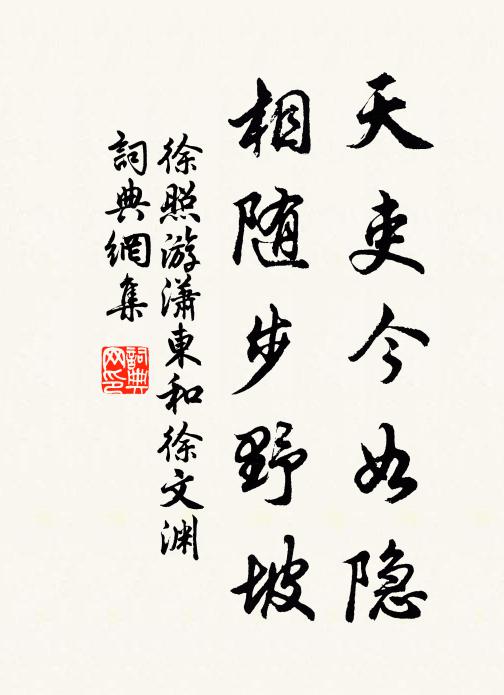 天吏今如隐
相随步野坡
徐照游潇東和徐文渊
詞典網集
詞典网印